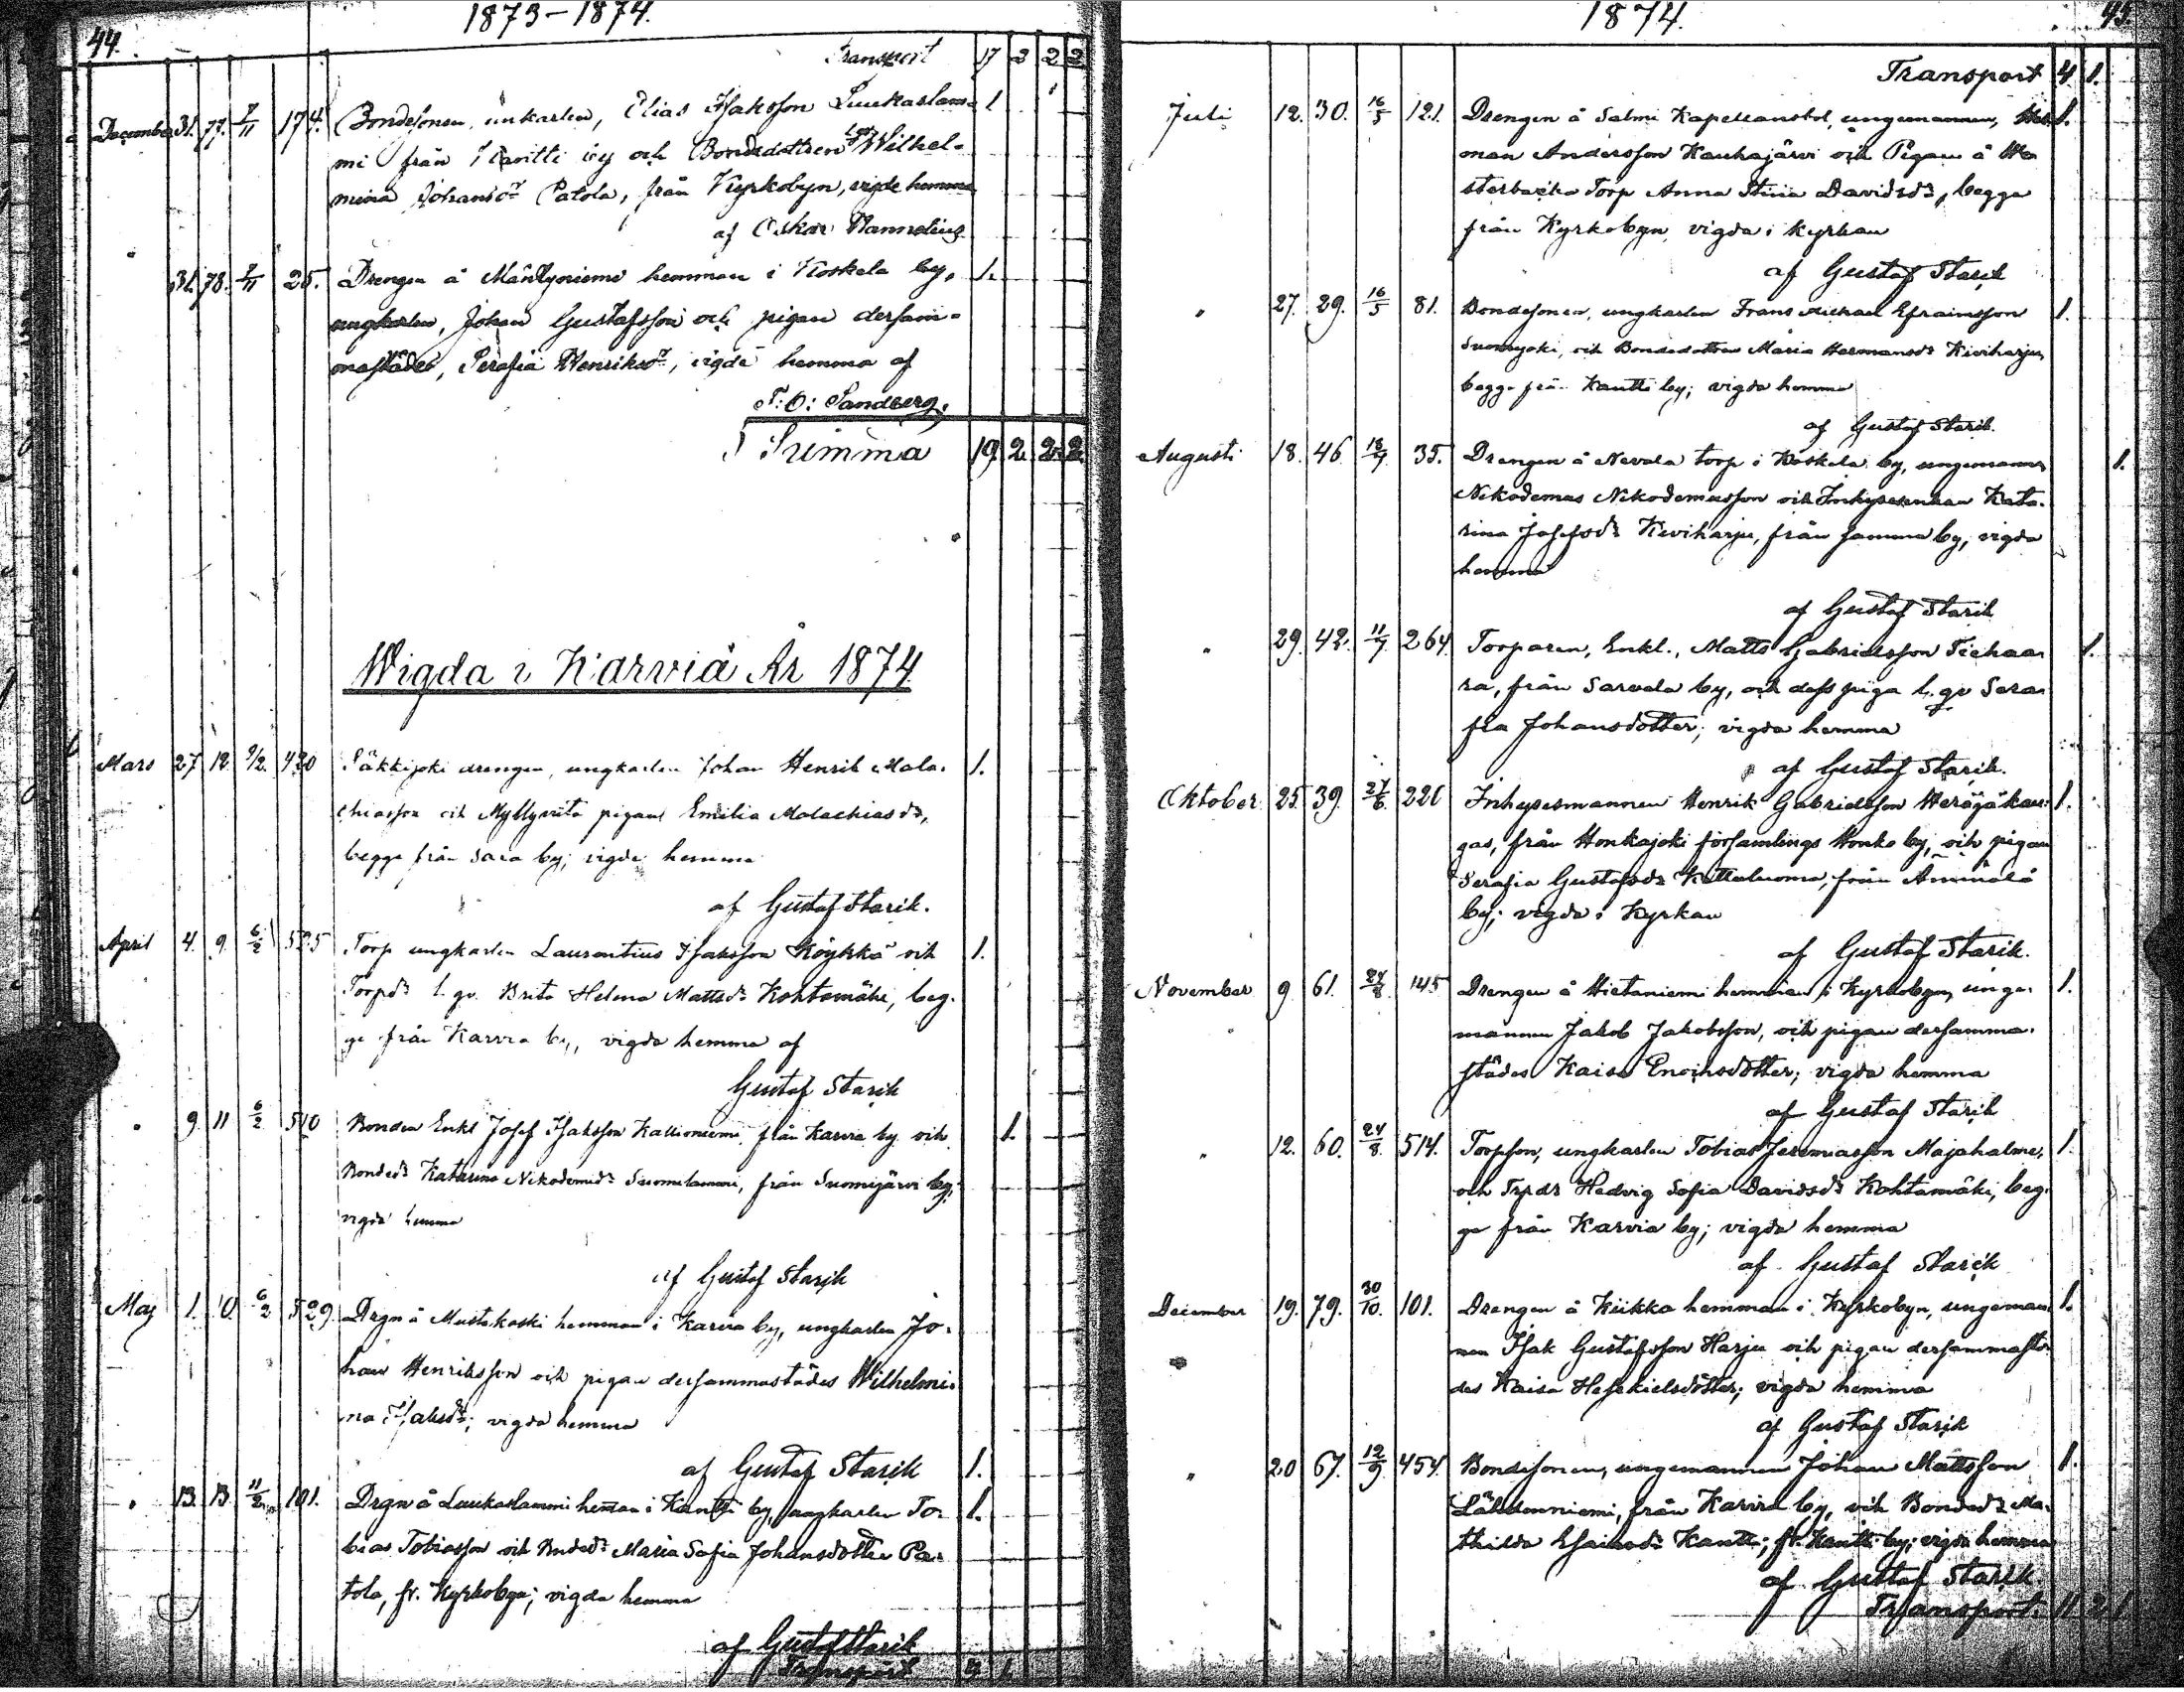 44.
1873-1874.
Transport 17 2 2 2
December 31. 77. 7/11 174. Bondesonen, unkarlen, Elias Isaksson Luukaslam- 1
mi från Kantti by och Bondedottren Wilhel-
mina Johansdr Patola, från Kyrkobyn, vigde hemma
af Oskar Hannelius
31. 78. 7/11 25. Drengen å Mäntyniemi hemman i Koskela by, 1.
ungkarlen, Johan Gustafsson och pigan dersam-
mastädes, Serafia Henriksdr, vigde hemma af
F: O: Sandberg.
Summa 19. 2. 2. 2.
Wigda i Karvia År 1874
Mars 27 12 9/2. 430 Säkkijoki drengen, ungkarlen Johan Henrik Mala- 1.
chiasson och Myllyviita pigan Emilia Malachiasdr,
begge från Sara by; vigda hemma
af Gustaf Starck.
April 4. 9. 6/2 525 Torp ungkarlen Laurentius Isaksson Köykkä och 1.
Torpdr l. qv. Brita Helena Mattsdr Kohtamäki, beg-
ge från Karvia by, vigda hemma af
Gustaf Starck
" 9. 11 6/2 510 Bonden Enkl Josef Isaksson Kallioniemi, från Karvia by och 1.
Bondedr Katarina Nikodemidr Suomilammi, från Suomijärvi by,
vigda hemma
af Gustaf Starck
Maj 1. 10. 6/2 529. Drgn å Mustakoski hemman i Karvia by, ungkarlen Jo-
han Henriksson och pigan dersammastädes Wilhelmi-
na Isaksdr; vigda hemma
af Gustaf Starck 1.
" 13. 13. 11/2 101. Drgn å Luukaslammi heman i Kantti by, ungkarlen To- 1.
bias Tobiasson och Bndedr Maria Sofia Johansdotter Pa-
tola, fr. Kyrkobyn; vigda hemma
af Gustaf Starck
Transport 4 1
1874.
45.
Transport 4 1.
Juli 12. 30. 16/5 121. Drengen å Salmi Kapellansbol, ungemannen, Her- 1.
man Andersson Kauhajärvi och Pigan å We-
sterbacka Torp Anna Stina Davidsdr, begge
från Kyrkobyn, vigda i kyrkan
af Gustaf Starck
" 27. 29. 16/5 81. Bondesonen, ungkarlen Frans Michael Efraimsson 1.
Suomijoki, och Bondedottren Maria Hermansdr Kiviharju,
begge från Kantti by; vigda hemma
af Gustaf Starck.
Augusti 18. 46. 18/7 35. Drengen å Nevala torp i Koskela by, ungemannen 1.
Nikodemus Nikodemusson och Inhysesenkan Kata-
rina Josefsdr Kiviharju, från samma by, vigda
hemma
af Gustaf Starck
" 29. 42. 11/7 264. Torparen, Enkl., Matts Gabrielsson Tiehaa- 1.
ra, från Sarvela by, och dess piga l. qv Sera-
fia Johansdotter; vigda hemma
af Gustaf Starck.
Oktober 25. 39. 27/6. 226 Inhysesmannen Henrik Gabrielsson Heräjäkan- 1.
gas, från Honkajoki församlings Honko by, och pigan
Serafia Gustafsdr Katteluoma, från Ämmälä
by; vigda i Kyrkan
af Gustaf Starck.
November 9 61. 24/8. 145 Drengen å Hietaniemi hemman i Kyrkobyn, unge- 1.
mannen Jakob Jakobsson, och pigan dersamma-
städes Kaisa Enochsdotter; vigda hemma
af Gustaf Starck
" 12. 60. 24/8. 514. Torpson, ungkarlen Tobias Jeremiasson Majahalme, 1.
och Trpdr Hedvig Sofia Davidsdr Kohtamäki, beg-
ge från Karvia by; vigda hemma
af Gustaf Starck
December 19. 79. 30/10. 101. Drengen å Kiikka hemman i Kyrkobyn, ungeman- 1.
nen Isak Gustafsson Harju och pigan dersammastä-
des Kaisa Hesekielsdotter; vigda hemma
af Gustaf Starck
" 20 67. 12/9 454. Bondesonen, ungemannen Johan Mattsson 1.
Lähdenniemi, från Karvia by, och Bondedr Ma-
thilda Esaiasdr Kantti; fr. Kantti by; vigda hemma
af Gustaf Starck.
Transport. 11. 2. 1.